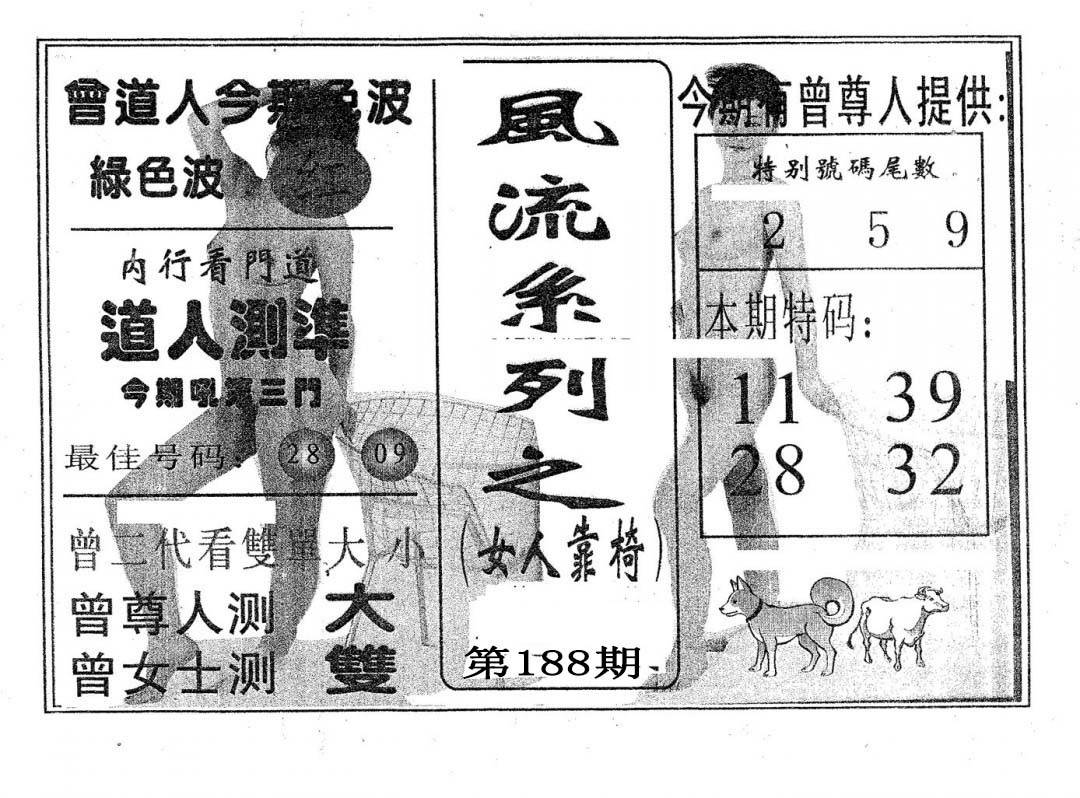 曾道人今期色波
綠色波
紅
內行看門道
道人測準
今期吼實三門
最佳号码: 28 09
曾二代看雙單大小
曾尊人测 大
曾女士测 雙
風流系列之
(女人靠椅)
第188期
今期有曾尊人提供:
特别號碼尾數
2 5 9
本期特码:
11 39
28 32